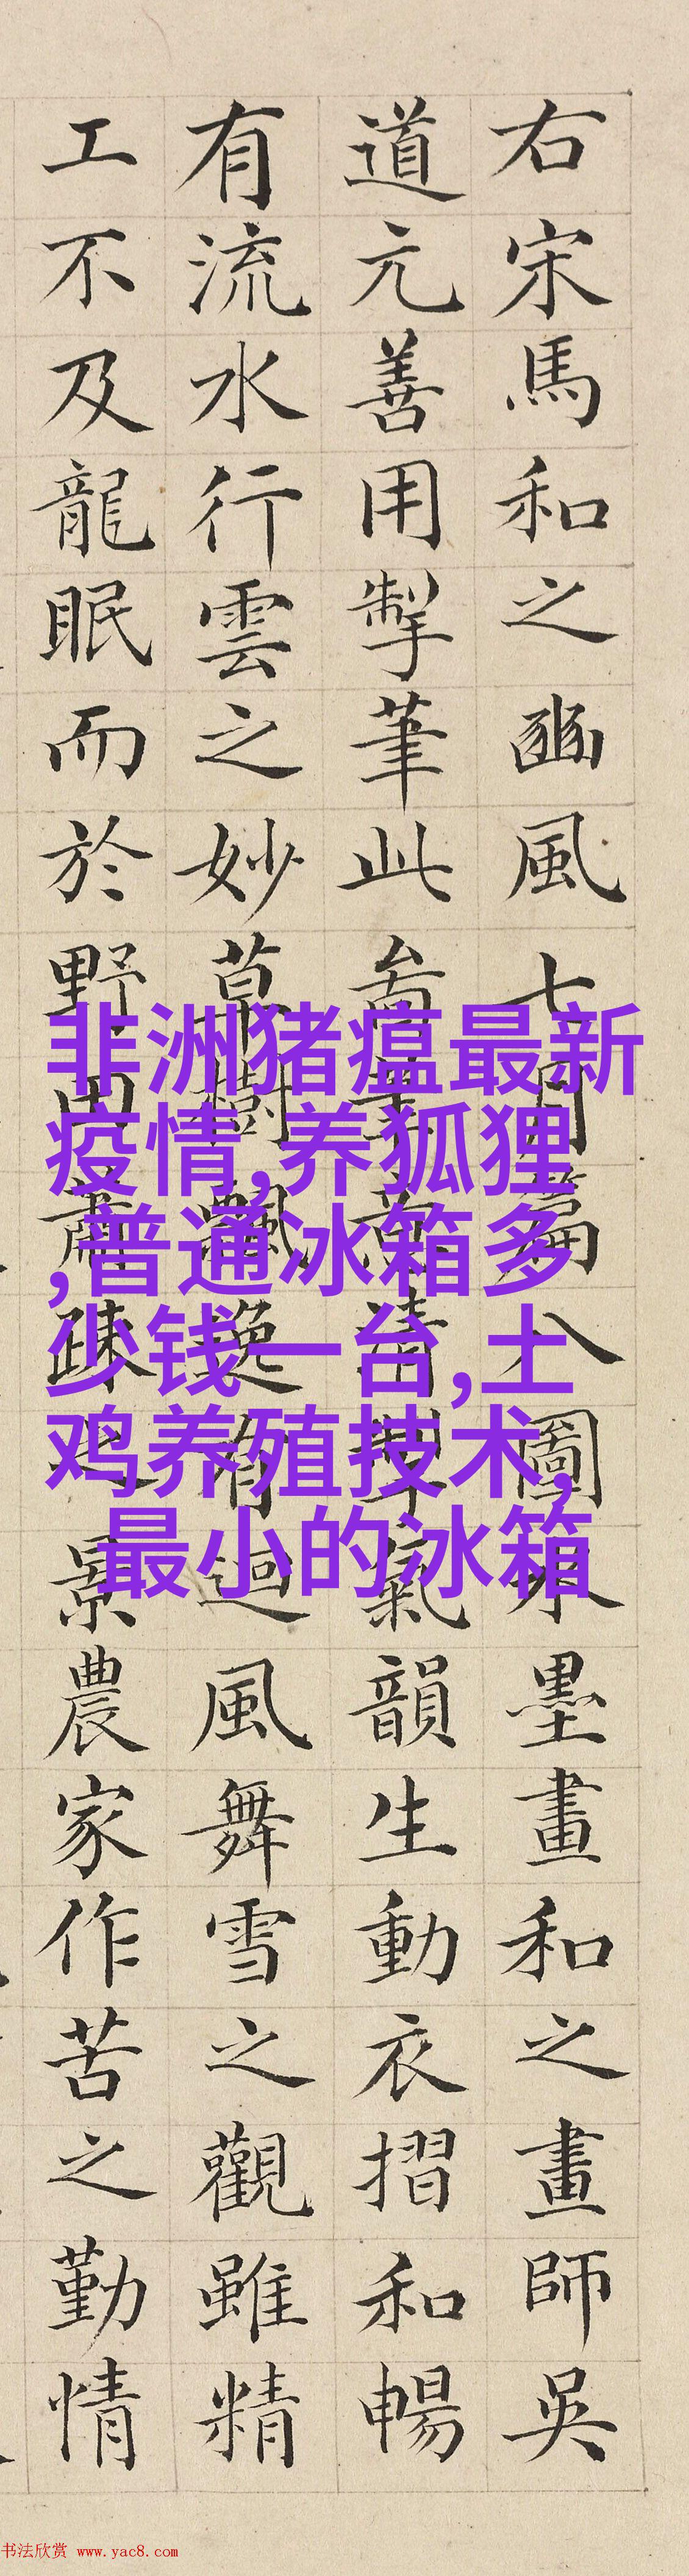 右宋馬和之豳風七月篇八圖水墨畫和之畫師吳
道元善用掣筆此清氣韻生動衣摺和暢
有流水行雲之妙草樹飄逸有迴風舞雪之觀雖精
工不及龍眠而於野田蕭疎之景農家作苦之勤情
非洲猪瘟最新
疫情,养狐狸
,普通冰箱多
少钱一台,土
鸡养殖技术,
最小的冰箱
书法欣赏 www.yac8.com